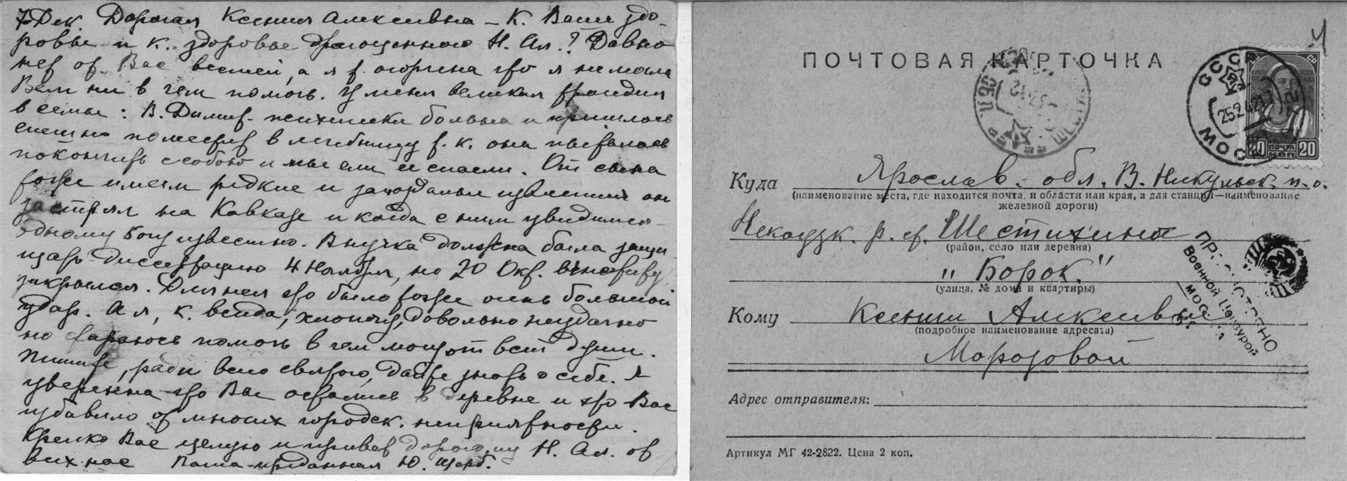 7 Дек Дорогая Ксения Алексеевна – К. Ваше здо-
ровье и к. здоровье драгоценного Н. Ал.? Давно
нет от Вас вестей, а я т. огорчена что я не могла
Вам ни в чем помочь. У меня великая трагедия
в семье: В. Димит. психически больна и пришлось
спешно поместить в лечебницу т. к. она пыталась
покончить с собою и мы еле ее спасли. От сына
тоже имеем редкие и запоздалые известия он
застрял на Кавказе и когда с ним увидимся
одному Богу известно. Внучка должна была защи-
щать диссертацию 4 Ноября, но 20 Окт.
закрылся. Для нея это было тоже очень большой
удар. А я, к. всегда, хлопочу, довольно неудачно
но стараюсь помочь в чем могу от всей души.
Пишите, ради всего святого, дайте знать о себе. Я
уверенна что Вас остались в деревне и что Вас
избавило от многих городск. неприятностей.
Крепко Вас целую и привет дорогому Н. Ал. от
всех нас Ваша преданная Ю. Щерб.
ПОЧТОВАЯ КАРТОЧКА
СССР
МОСКВА
25 2 42
ПОЧТА
20 КОП 20
Куда Ярослав. обл. В. Никульск. п. о.
(наименование места, где находится почта, и области или края, а для станций—наименование
железной дороги)
Некоузск. р. ст. Шестихино
(район, село или деревня)
"Борок"
(улица, № дома и квартиры)
Кому Ксении Алексеевне
(подробное наименование адресата)
Морозовой
ПРОСМОТРЕНО
Военной Цензурой
МОСКВА
Адрес отправителя:
Артикул МГ 42-2822. Цена 2 коп.